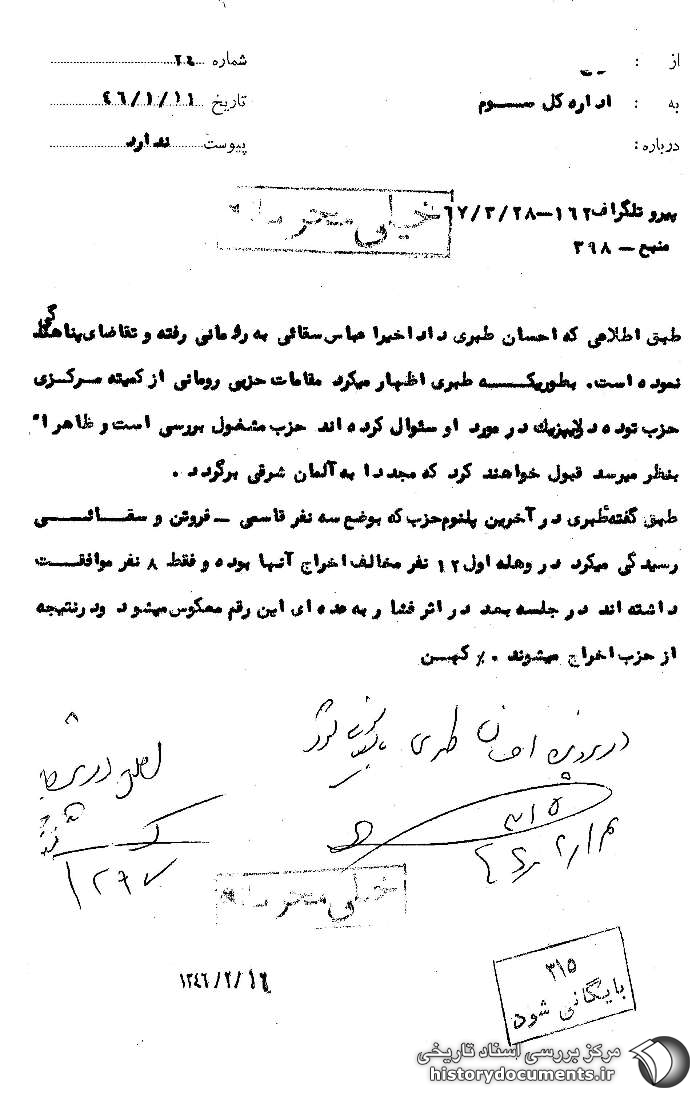 از :
شماره ۲٤
به : اداره کل سوم
تاریخ ٤٦/۱/۱۱
درباره:
پیوست ندارد
پیرو تلگراف ۱۶۲-۶۷/۳/۲۸
خیلی محرمانه
منبع – ۳۹۸
طبق اطلاعی که احسان طبری داد اخیرا عباس سقائی به رومانی رفته و تقاضای پناهندگی
نموده است. بطوریکه طبری اظهار میکرد مقامات حزبی رومانی از کمیته مرکزی
حزب توده در لایپزیك در مورد او سئوال کرده اند حزب مشغول بررسی است و ظاهرا"
بنظر میرسد قبول خواهند کرد که مجددا به آلمان شرقی برگردد .
طبق گفته طبری در آخرین پلنوم حزب که بوضع سه نفر قاسمی – فروتن و سقائی
رسیدگی میکرد در وهله اول ۱۲ نفر مخالف اخراج آنها بوده و فقط ۸ نفر موافقت
داشته اند در جلسه بعد در اثر فشار به عده ای این رقم معکوس میشود ودرنتیجه
از حزب اخراج میشوند . ٪ کهن
در پرونده احسان طبری بایگانی شود
۳۱۵
خیلی محرمانه
۱۳٤٦/۲/۱۶
۳۱۵
بایگانی شود
مرکز بررسی اسناد تاریخی
historydocuments.ir